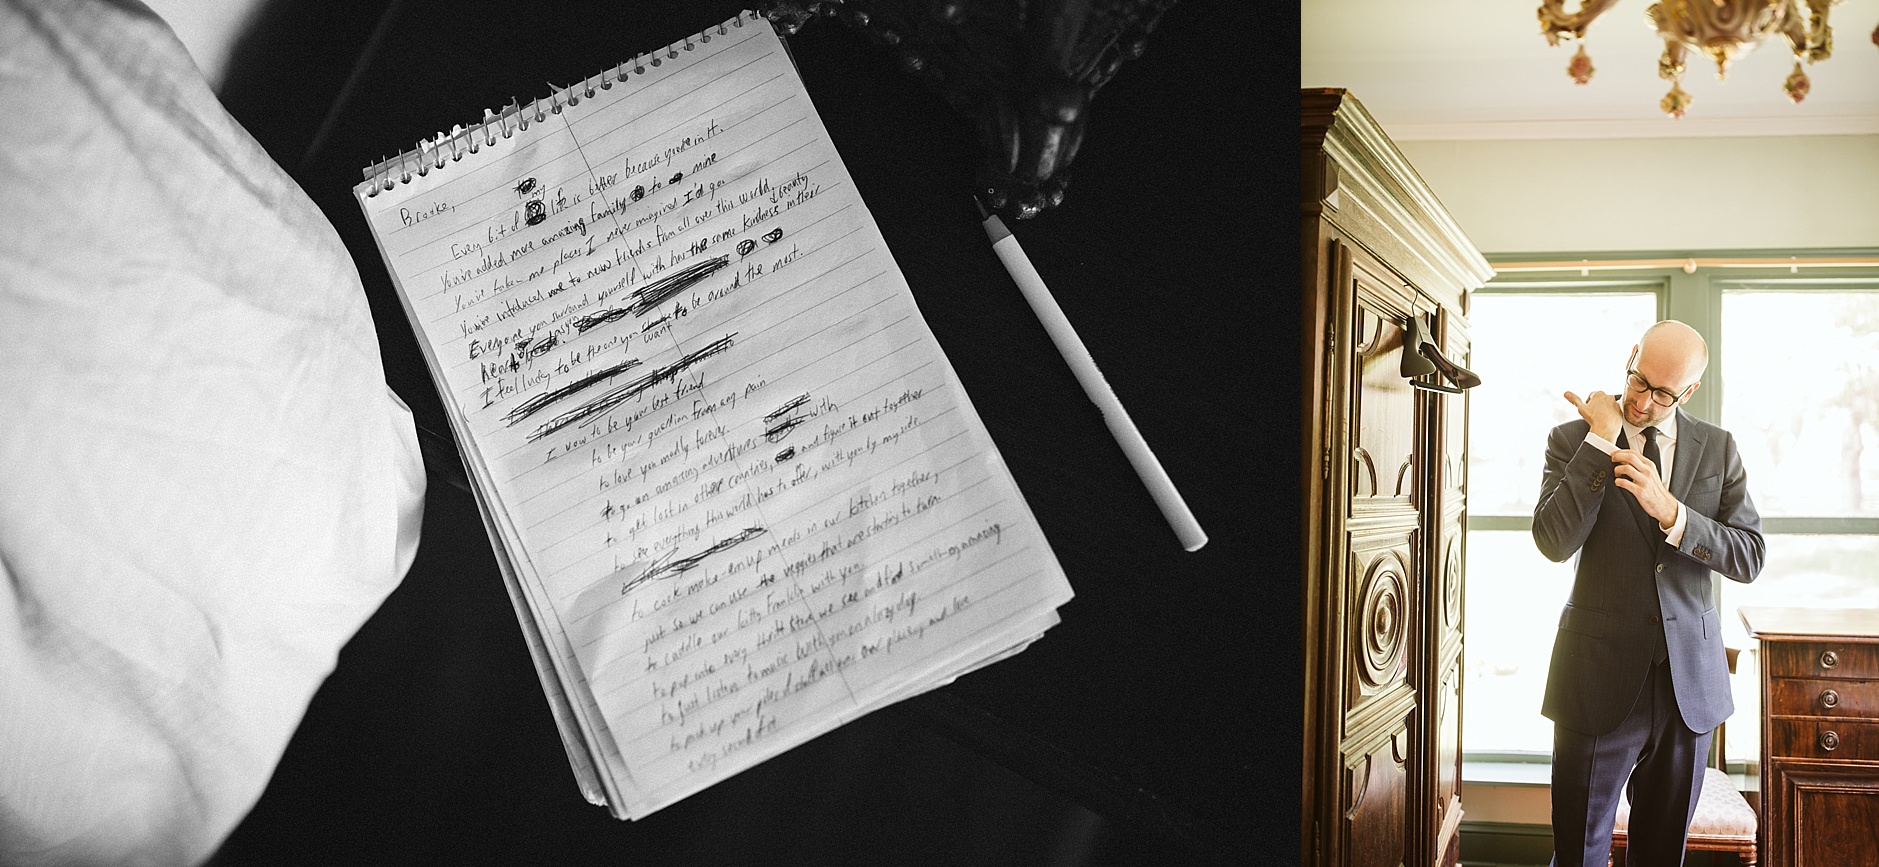 Brooke,
my
Every bit of life is better because you're in it.
You've added more amazing family to mine
You've taken me places I never imagined I'd go
You've introduced me to new friends from all over this world,
Everyone you surround yourself with has the same kindness & beauty in their
heart as you
I feel lucky to be the one you want to be around the most.
I vow to be your best friend
to be your guardian from any pain
to love you madly forever.
to go on amazing adventures with
to get lost in other countries, and figure it out together
to see everything this world has to offer, with you by my side.
to cook make-em-up meals in our kitchen together,
just so we can use the veggies that are starting to turn.
to cuddle our fatty Franklin with you.
to pop into every thrift store we see and find something amazing
to just listen to music with you on a lazy day.
to pick up your piles of stuff all over our place and love
every second of it